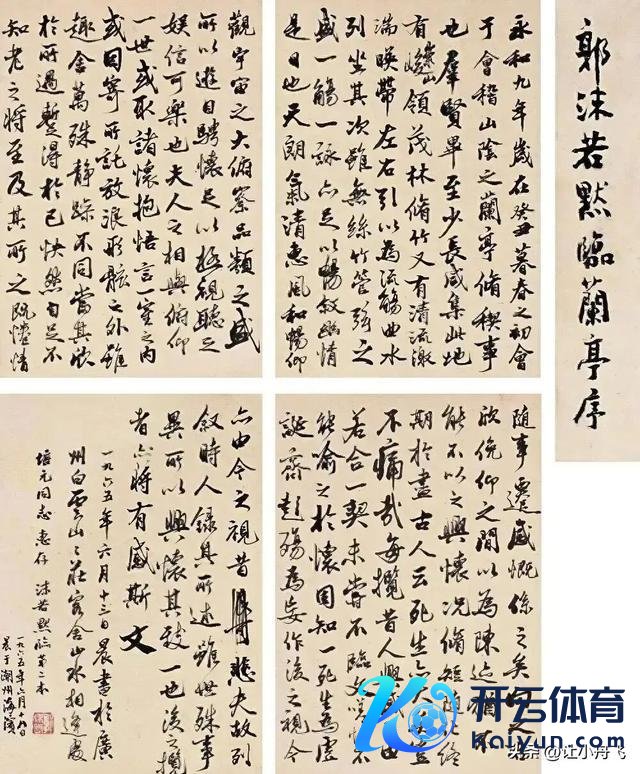 郭沫若默臨蘭亭序
永和九年歲在癸丑暮春之初會
于會稽山陰之蘭亭脩稧事
也羣賢畢至少長咸集此地
有崇山峻領茂林脩竹又有清流激
湍暎帶左右引以為流觴曲水
列坐其次雖無絲竹管弦之
盛一觴一詠亦足以暢敘幽情
是日也天朗氣清惠風和暢仰
觀宇宙之大俯察品類之盛
所以遊目騁懷足以極視聽之
娛信可樂也夫人之相與俯仰
一世或取諸懷抱悟言一室之內
或因寄所託放浪形骸之外雖
趣舍萬殊靜躁不同當其欣
於所遇暫得於己快然自足不
知老之將至及其所之既惓情
隨事遷感慨係之矣向之所
欣俛仰之間以為陳迹猶不
能不以之興懷況脩短隨化終
期於盡古人云死生亦大矣豈
不痛哉每攬昔人興感之由
若合一契未嘗不臨文嗟悼不
能喻之於懷固知一死生為虛
誕齊彭殤為妄作後之視今
亦由今之視昔悲夫故列
敘時人錄其所述雖世殊事
異所以興懷其致一也後之攬
者亦將有感斯文
一九六五年六月十三日晨書於廣
州白雲山山莊客舍山水相邀
培元同志惠存 沫若默臨第二本
一九六五年六月十九日
晨于湖州海濱
开云体育
头条 @让小丹飞